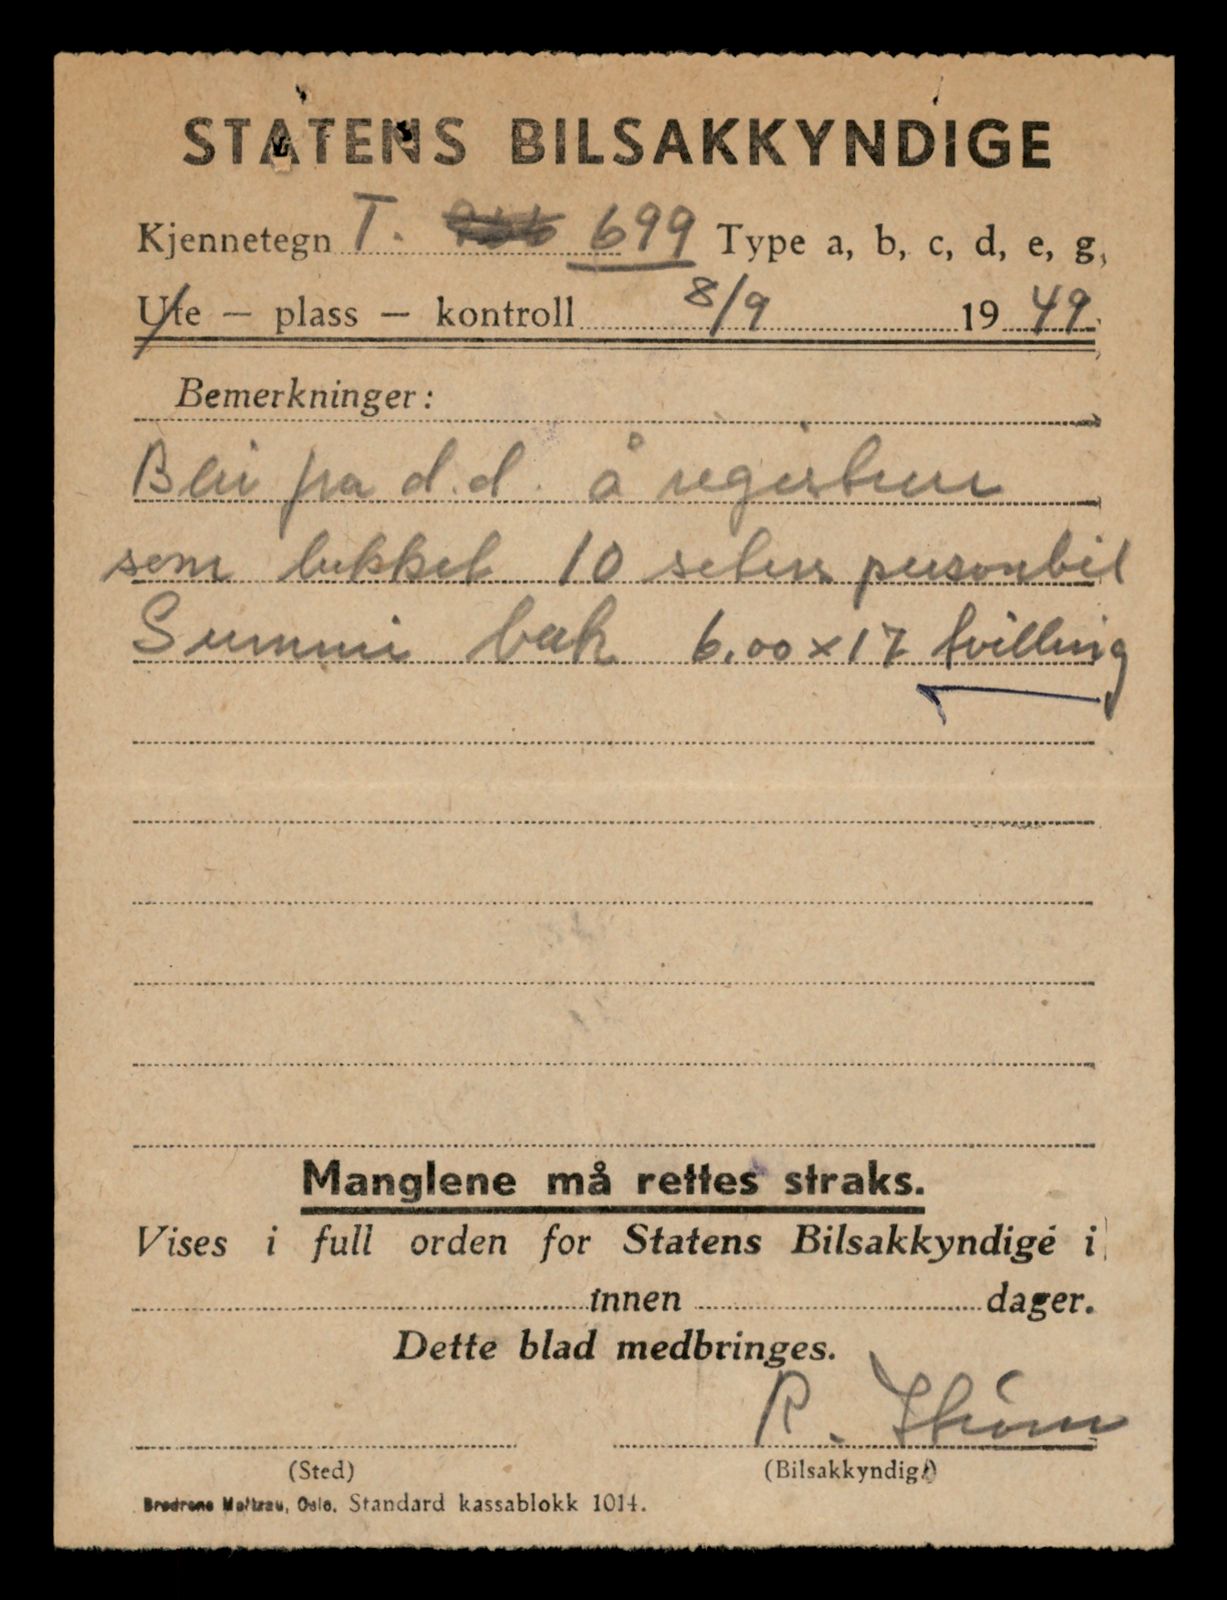 STATENS BILSAKKYNDIGE
Kjennetegn T. 699 Type a, b, c, d, e, g,
Ute — plass — kontroll 8/9 1949
Bemerkninger:
Blir fra d.d. å registrere
som lukket 10 seters personbil
Gummi bak 6.00 x 17 tvilling
Manglene må rettes straks.
Vises i full orden for Statens Bilsakkyndige i
innen dager.
Dette blad medbringes.
R. Strøm
(Sted) (Bilsakkyndig)
Brødrene Maltzau, Oslo. Standard kassablokk 1014.